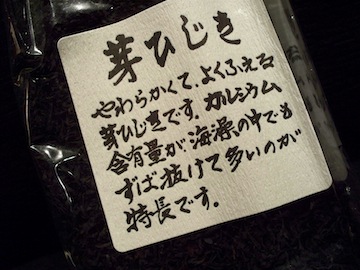 芽ひじき
やわらかくて、よくふえる
芽ひじきです。カルシウム
含有量が、海藻の中でも
ずば抜けて多いのが
特長です。